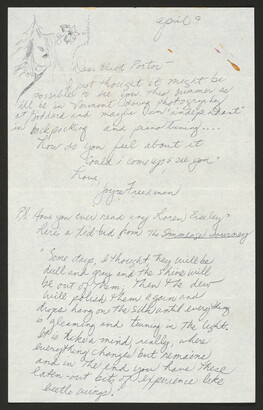 april 9
Dear Eliot Porter -
I just thought it might be
possible to see you this summer as
I'll be in Vermont doing photography
at Goddard and maybe an "independent"
in backpacking and piano tuning....
How do you feel about it
Could I come up & see you?
Love,
Joyce Freedman
P.S. Have you ever read any Loren Eiseley?
Here's a tid-bid from The Immense Journey
"Some day, I thought, they will be
dull and gray and the shine will
be out of them. Then the dew
will polish them again and
drops hang on the silk until everything
is gleaming and turning in the light.
It is like a mind, really, where
everything changes but remains
and in the end you have these
eaten-out bits of experience like
beetle wings."